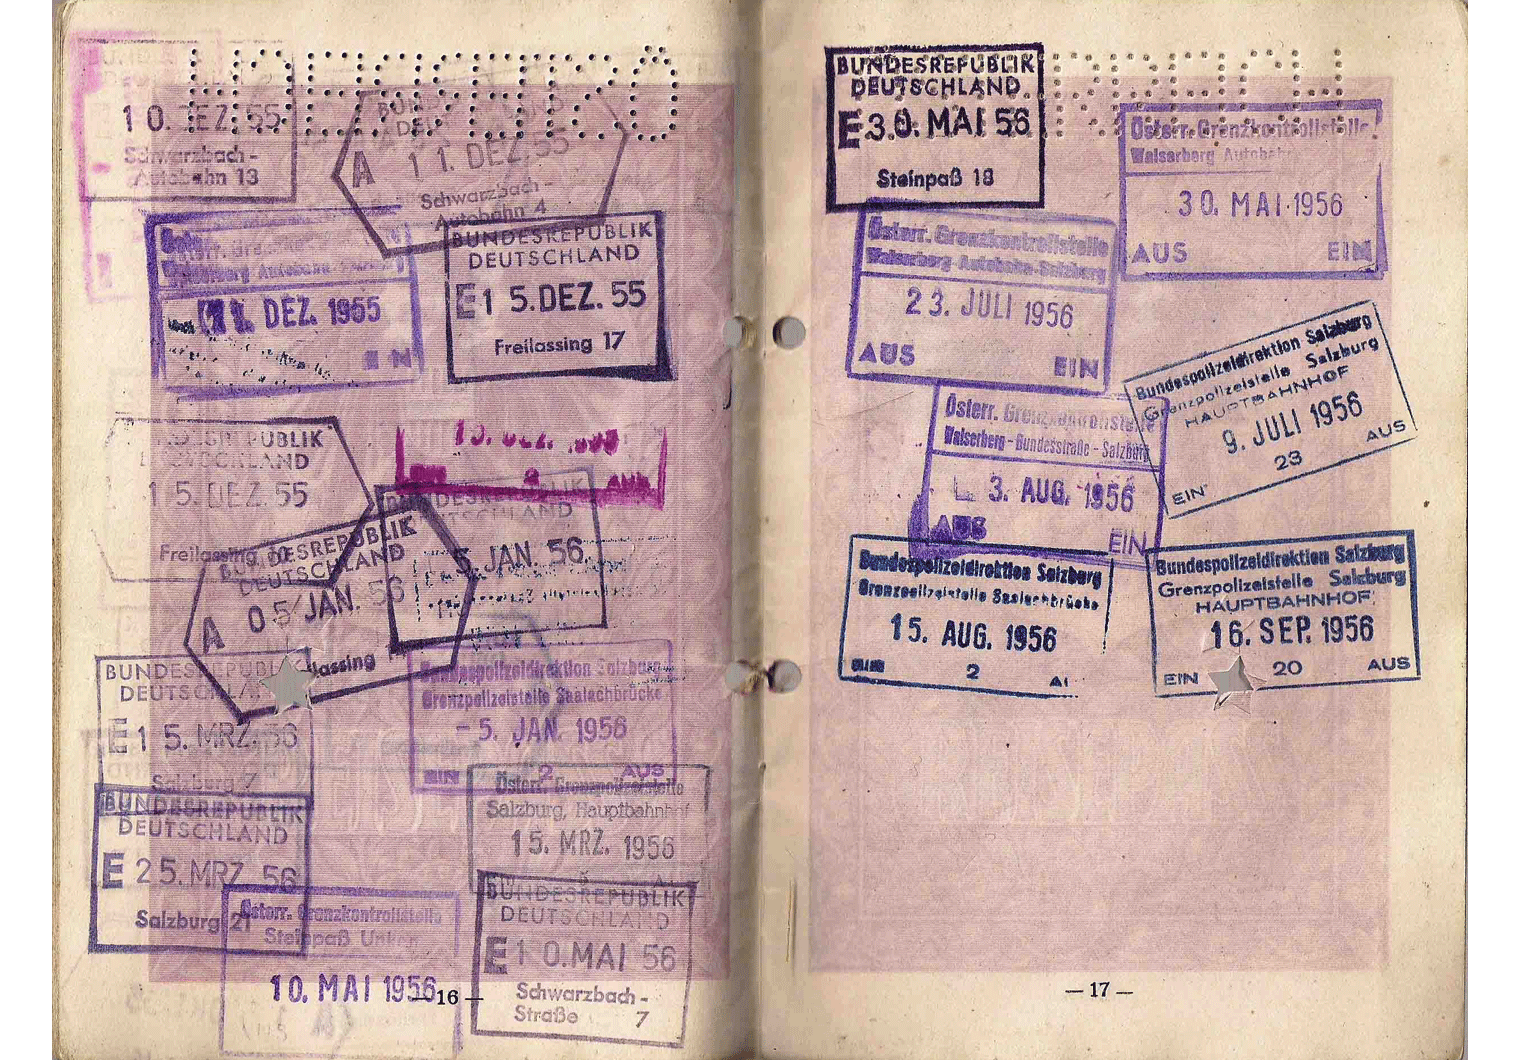 10. DEZ. 55
Schwarzbach -
Autobahn 13
A 11. DEZ. 55
Schwarzbach -
Autobahn 4
Österr.
Walserberg Autobahn
11. DEZ. 1955
EIN
BUNDESREPUBLIK
DEUTSCHLAND
E 15. DEZ. 55
Freilassing 17
BUNDESREPUBLIK
DEUTSCHLAND
15. DEZ. 55
Freilassing
BUNDESREPUBLIK
DEUTSCHLAND
5. JAN. 56
BUNDESREPUBLIK
DEUTSCHLAND
A 05. JAN. 56
BUNDESREPUBLIK
DEUTSCHLAND
E 15. MRZ. 56
Salzburg 7
Bundespolizeidirektion Salzburg
Grenzpolizeistelle Saalachbrücke
- 5. JAN. 1956
EIN 2 AUS
Österr. Grenzpolizeistelle
Salzburg, Hauptbahnhof
15. MRZ. 1956
5
BUNDESREPUBLIK
DEUTSCHLAND
E 25. MRZ. 56
Salzburg 21
Österr. Grenzkontrollstelle
Steinpaß Unken
10. MAI 1956
BUNDESREPUBLIK
DEUTSCHLAND
E 10. MAI 56
Schwarzbach -
Straße 7
— 16 —
BUNDESREPUBLIK
DEUTSCHLAND
E 30. MAI 56
Steinpaß 18
Österr. Grenzkontrollstelle
Walserberg Autobahn
30. MAI 1956
AUS EIN
Österr. Grenzkontrollstelle
Walserberg-Autobahn-Salzburg
23. JULI 1956
AUS EIN
Bundespolizeidirektion Salzburg
Grenzpolizeistelle Salzburg
HAUPTBAHNHOF
9. JULI 1956
23
EIN AUS
Österr. Grenzkontrollstelle
Walserberg - Bundesstraße - Salzburg
3. AUG. 1956
AUS EIN
Bundespolizeidirektion Salzburg
Grenzpolizeistelle Saalachbrücke
15. AUG. 1956
2
Bundespolizeidirektion Salzburg
Grenzpolizeistelle Salzburg
HAUPTBAHNHOF
16. SEP. 1956
EIN 20 AUS
— 17 —